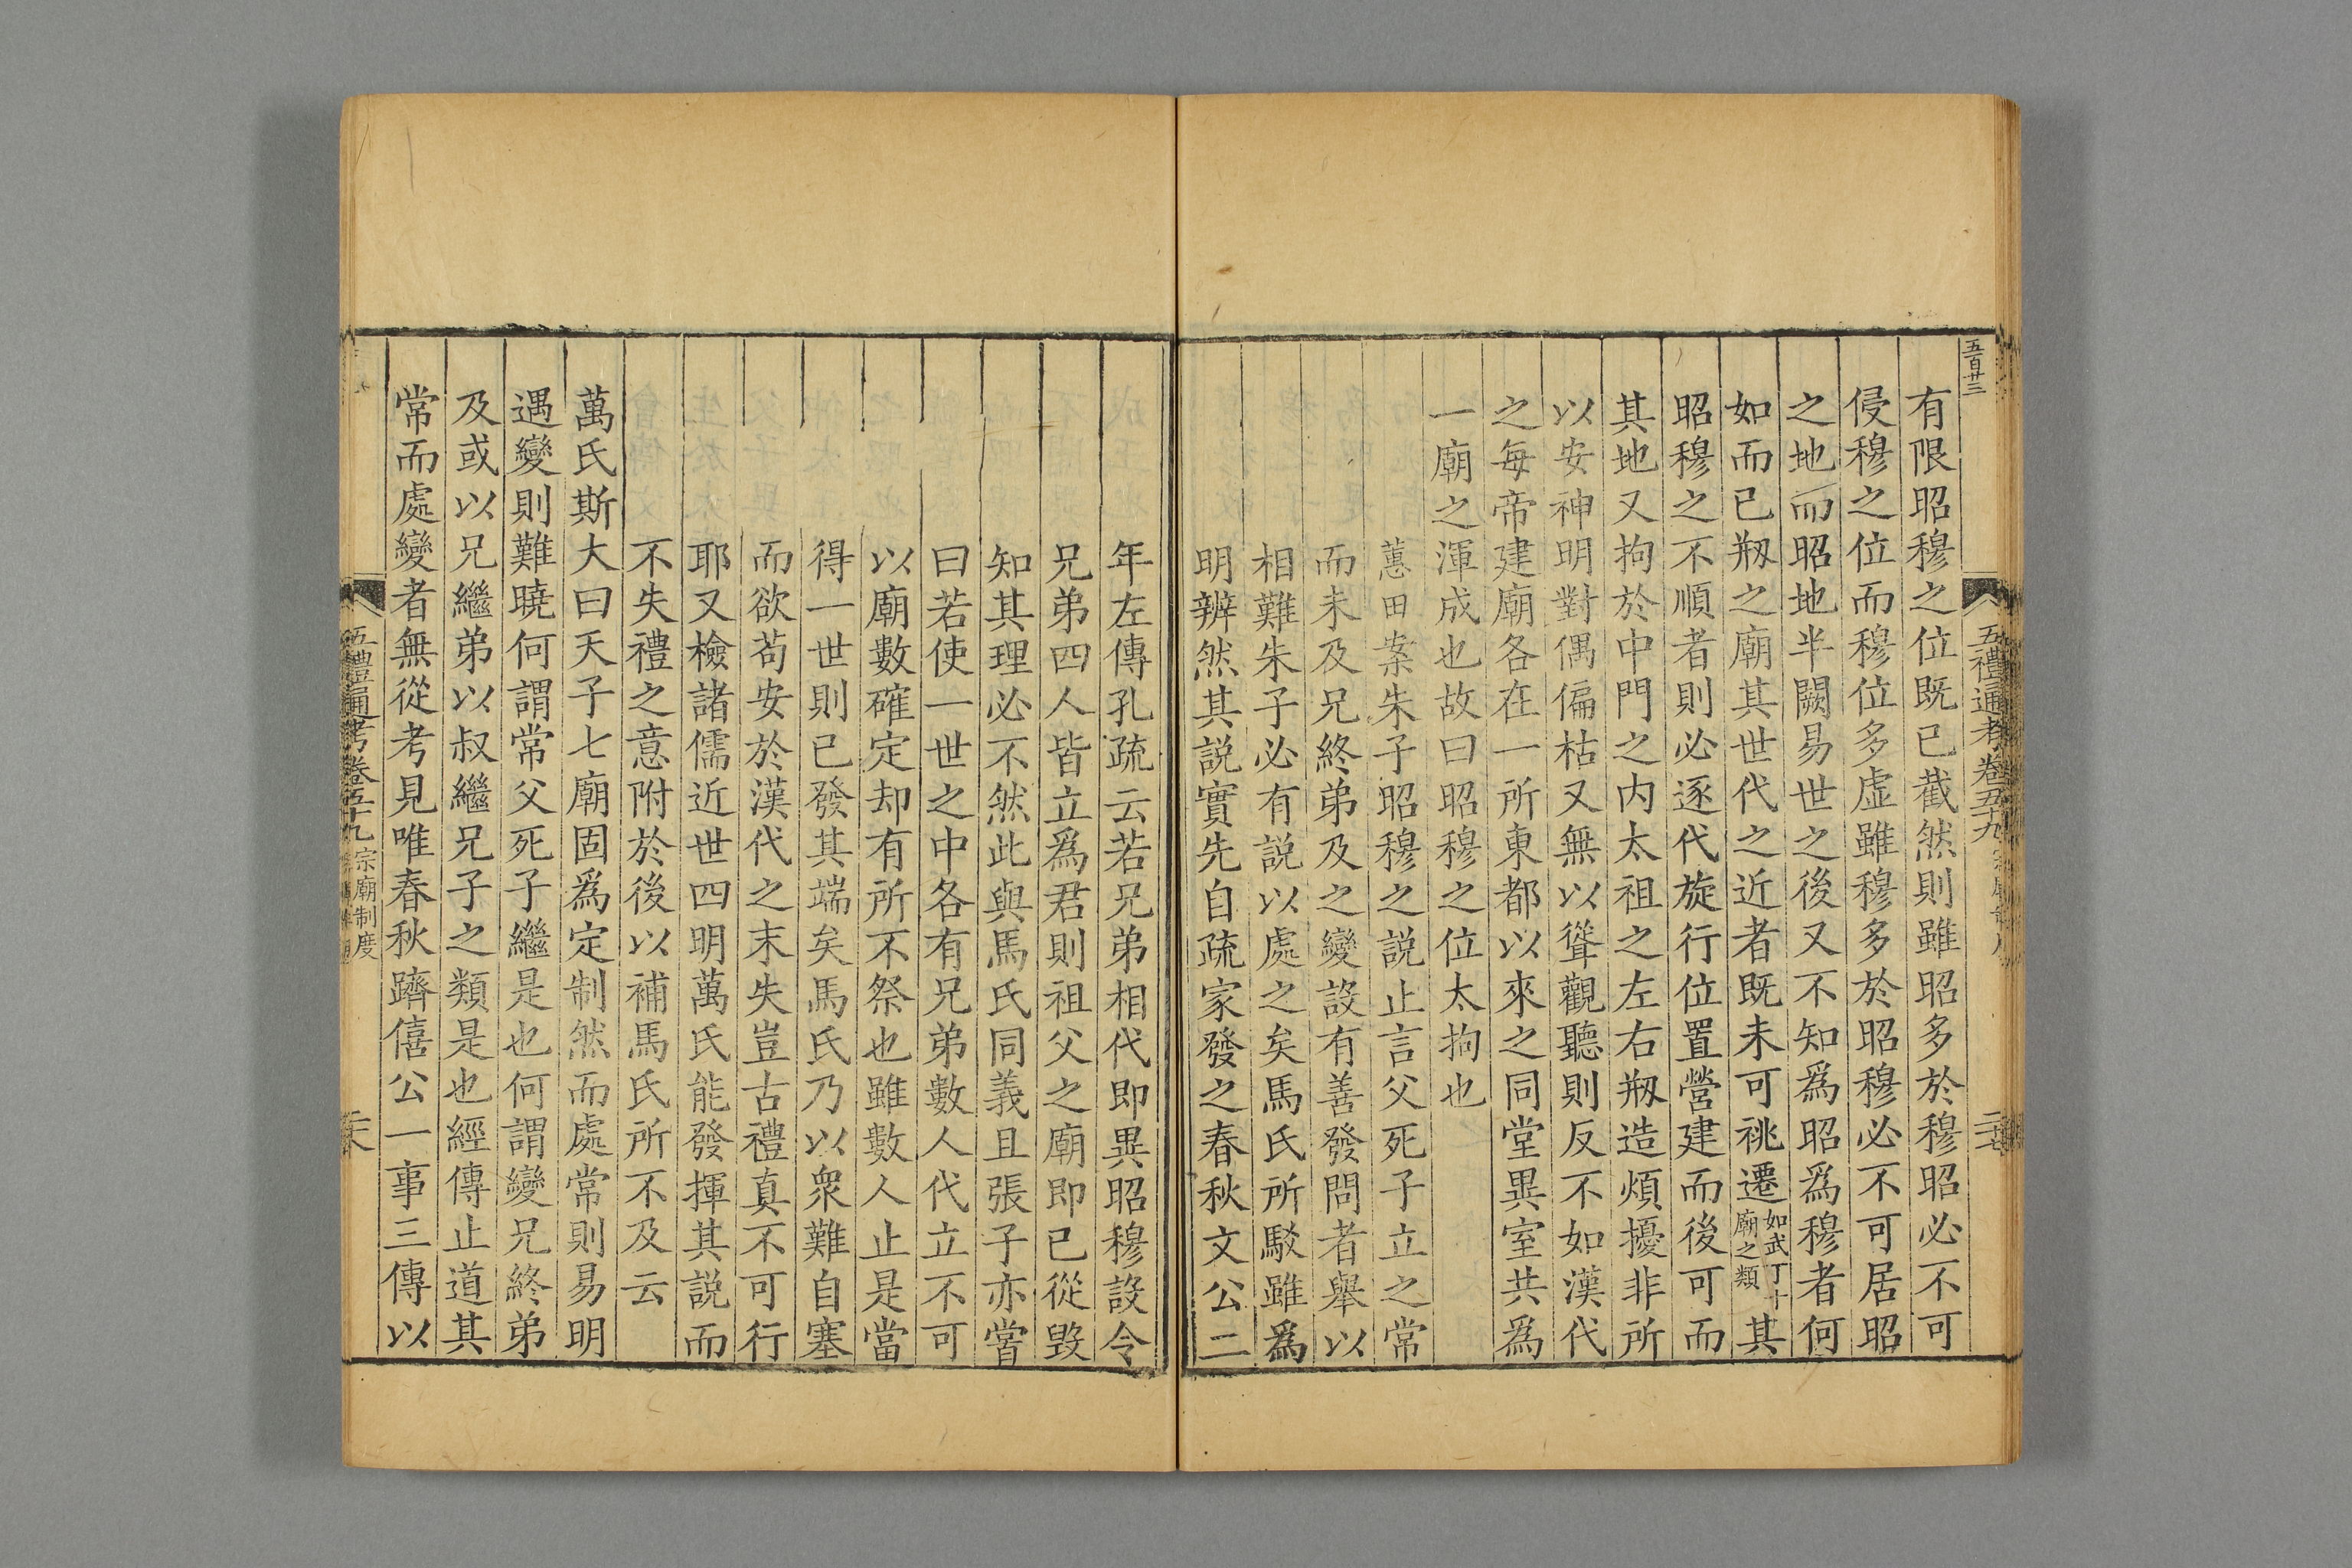 五百廿三
五禮通考卷五十九
有限昭穆之位既已截然則雖昭多於穆昭必不可
侵穆之位而穆位多虛雖穆多於昭穆必不可居昭
之地而昭地半闕易世之後又不知爲昭爲穆者何
如而已剏之廟其世代之近者既未可祧遷如武丁十廟之類其
昭穆之不順者則必逐代旋行位置營建而後可而
其地又拘於中門之内太祖之左右剏造煩擾非所
以安神明對偶偏枯又無以聳觀聽則反不如漢代
之每帝建廟各在一所東都以來之同堂異室共爲
一廟之渾成也故曰昭穆之位太拘也
蕙田案朱子昭穆之説止言父死子立之常
而未及兄終弟及之變設有善發問者舉以
相難朱子必有説以處之矣馬氏所駁雖爲
明辨然其説實先自疏家發之春秋文公二
年左傳孔疏云若兄弟相代即異昭穆設令
兄弟四人皆立爲君則祖父之廟即已從毀
知其理必不然此與馬氏同義且張子亦嘗
曰若使一世之中各有兄弟數人代立不可
以廟數確定却有所不祭也雖數人止是當
得一世則已發其端矣馬氏乃以衆難自塞
而欲苟安於漢代之末失豈古禮真不可行
耶又檢諸儒近世四明萬氏能發揮其説而
不失禮之意附於後以補馬氏所不及云
萬氏斯大曰天子七廟固爲定制然而處常則易明
遇變則難曉何謂常父死子繼是也何謂變兄終弟
及或以兄繼弟以叔繼兄子之類是也經傳止道其
常而處變者無從考見唯春秋躋僖公一事三傳以
五禮通考卷五十九 宗廟制度